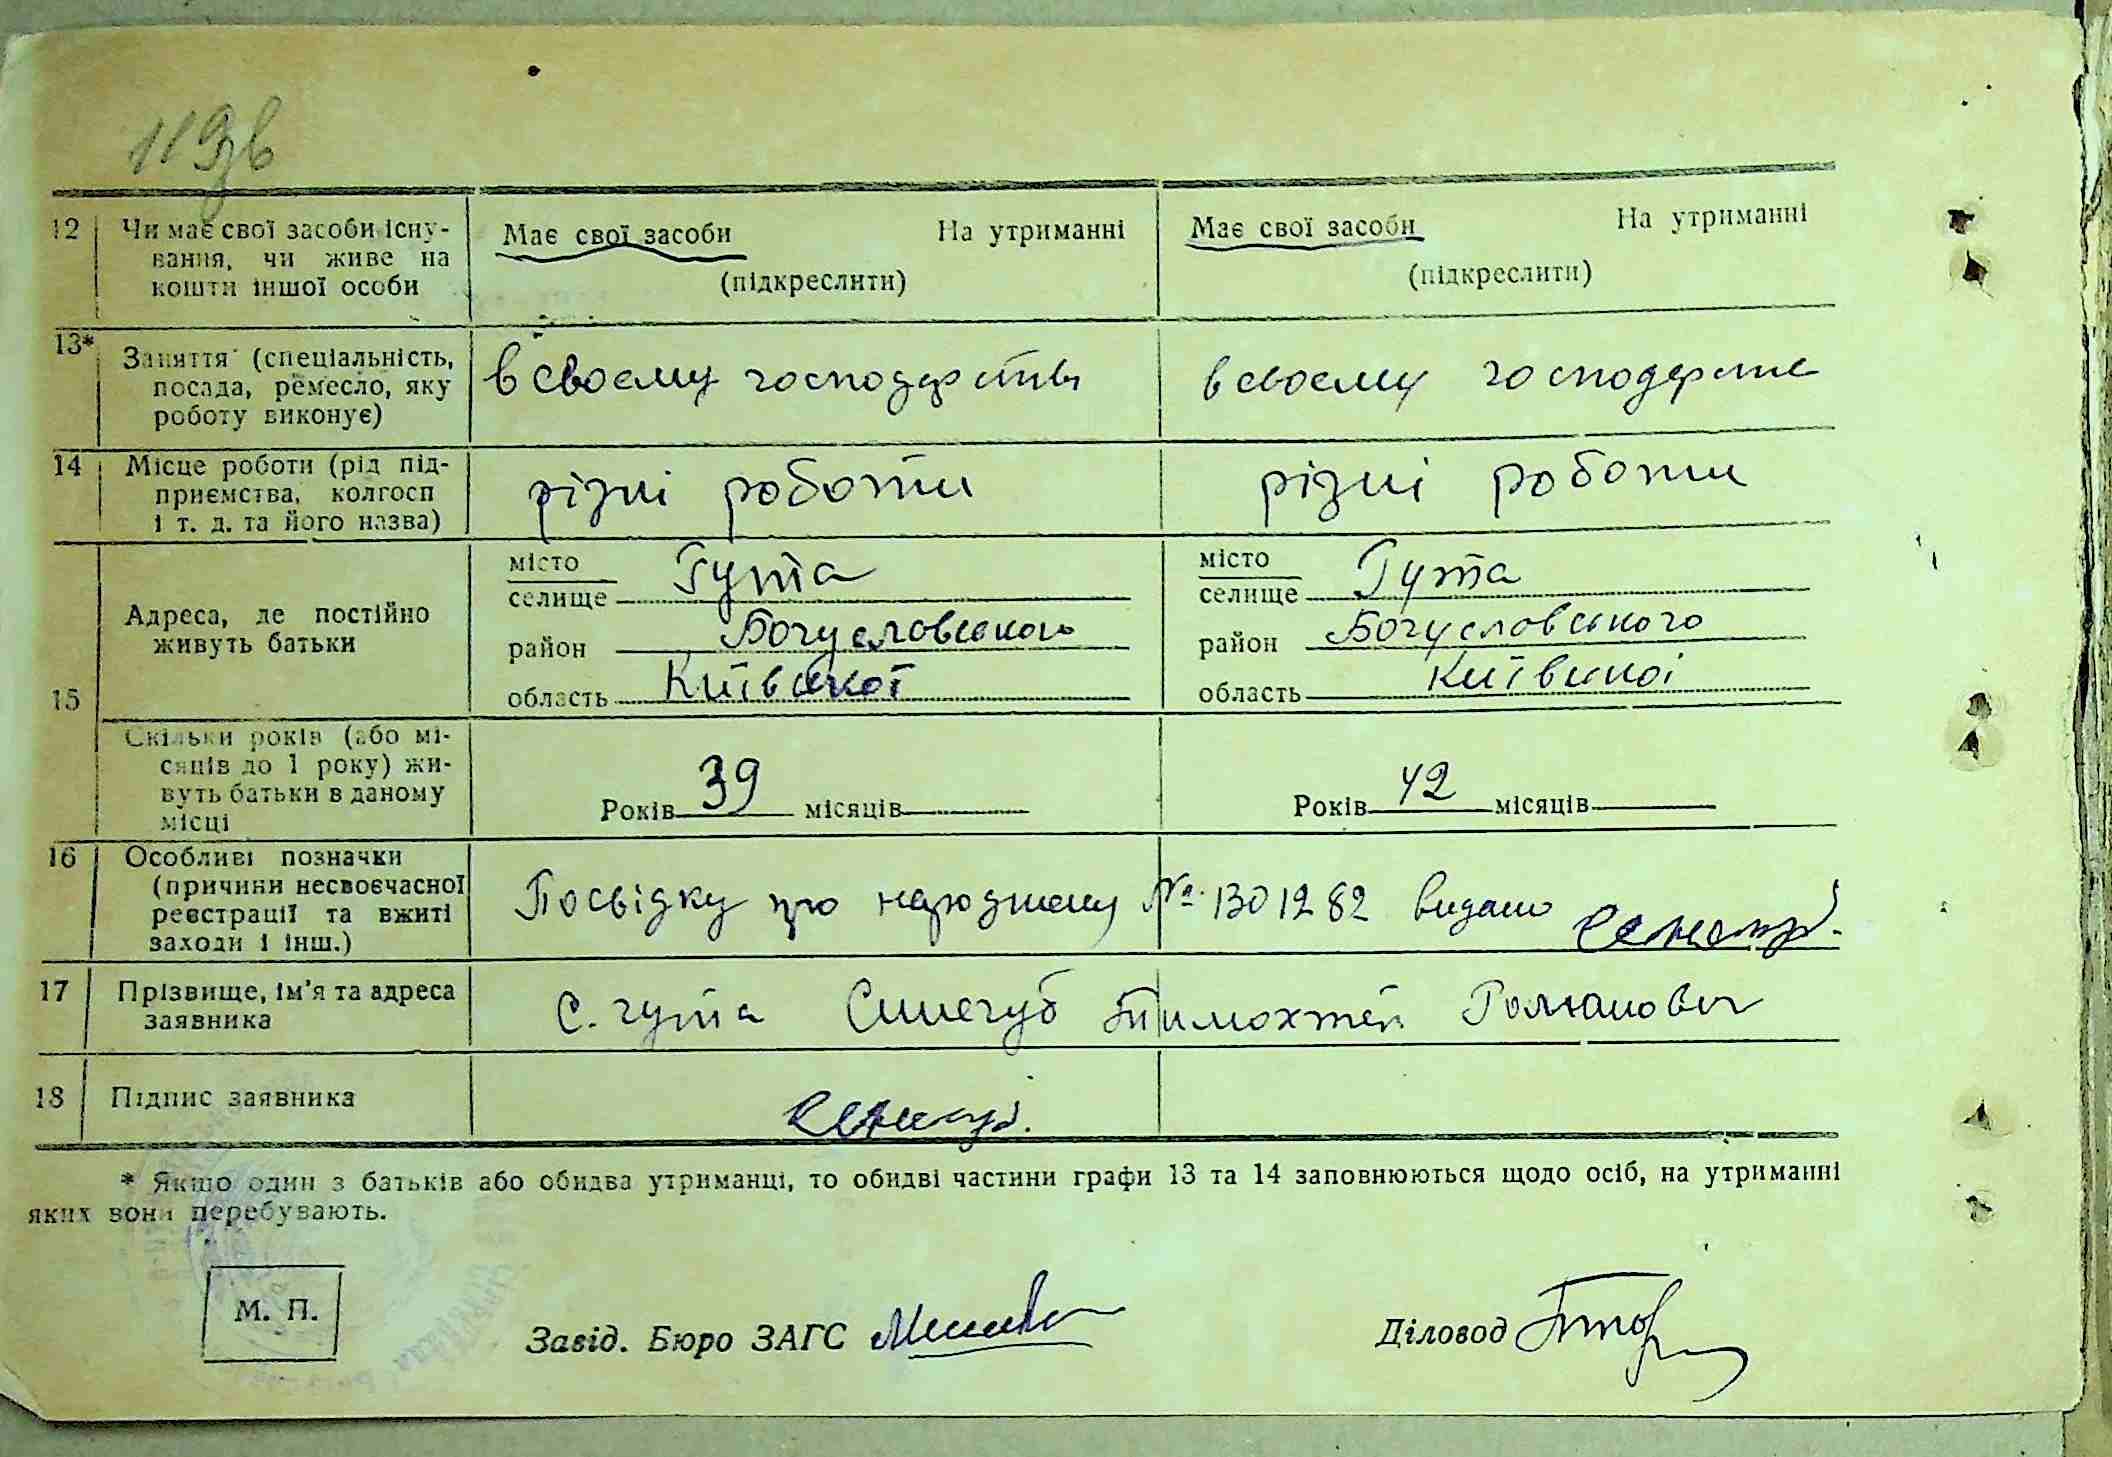 119зв
12 Чи має свої засоби існу- Має свої засоби На утриманні Має свої засоби На утриманні
вання, чи живе на (підкреслити) (підкреслити)
кошти іншої особи
13* Заняття (спеціальність, в своєму господарстві в своєму господарстві
посада, ремесло, яку
роботу виконує)
14 Місце роботи (рід під- різні роботи різні роботи
приємства, колгосп
і т. д. та його назва)
місто Гута місто Гута
селище селище
Адреса, де постійно район Богуславського район Богуславського
живуть батьки
15 область Київської область Київської
Скільки років (або мі-
сяців до 1 року) жи-
вуть батьки в даному Років 39 місяців Років 42 місяців
місці
16 Особливі позначки
(причини несвоєчасної Посвідку про народження № 1301282 видано
реєстрації та вжиті
заходи і інш.)
17 Прізвище, ім’я та адреса с. гута Синегуб Тимохтей Романович
заявника
18 Підпис заявника
* Якщо один з батьків або обидва утриманці, то обидві частини графи 13 та 14 заповнюються щодо осіб, на утриманні
яких вони перебувають.
М. П.
Завід. Бюро ЗАГС Діловод